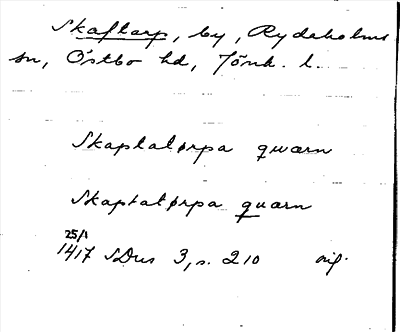 Skaftarp, by, Rydaholms
sn, Östbo hd, Jönk. l.
Skaptatørpa qwærn
Skaptatørpa quærn
25/1
1417 SDns 3, s. 210 orig.